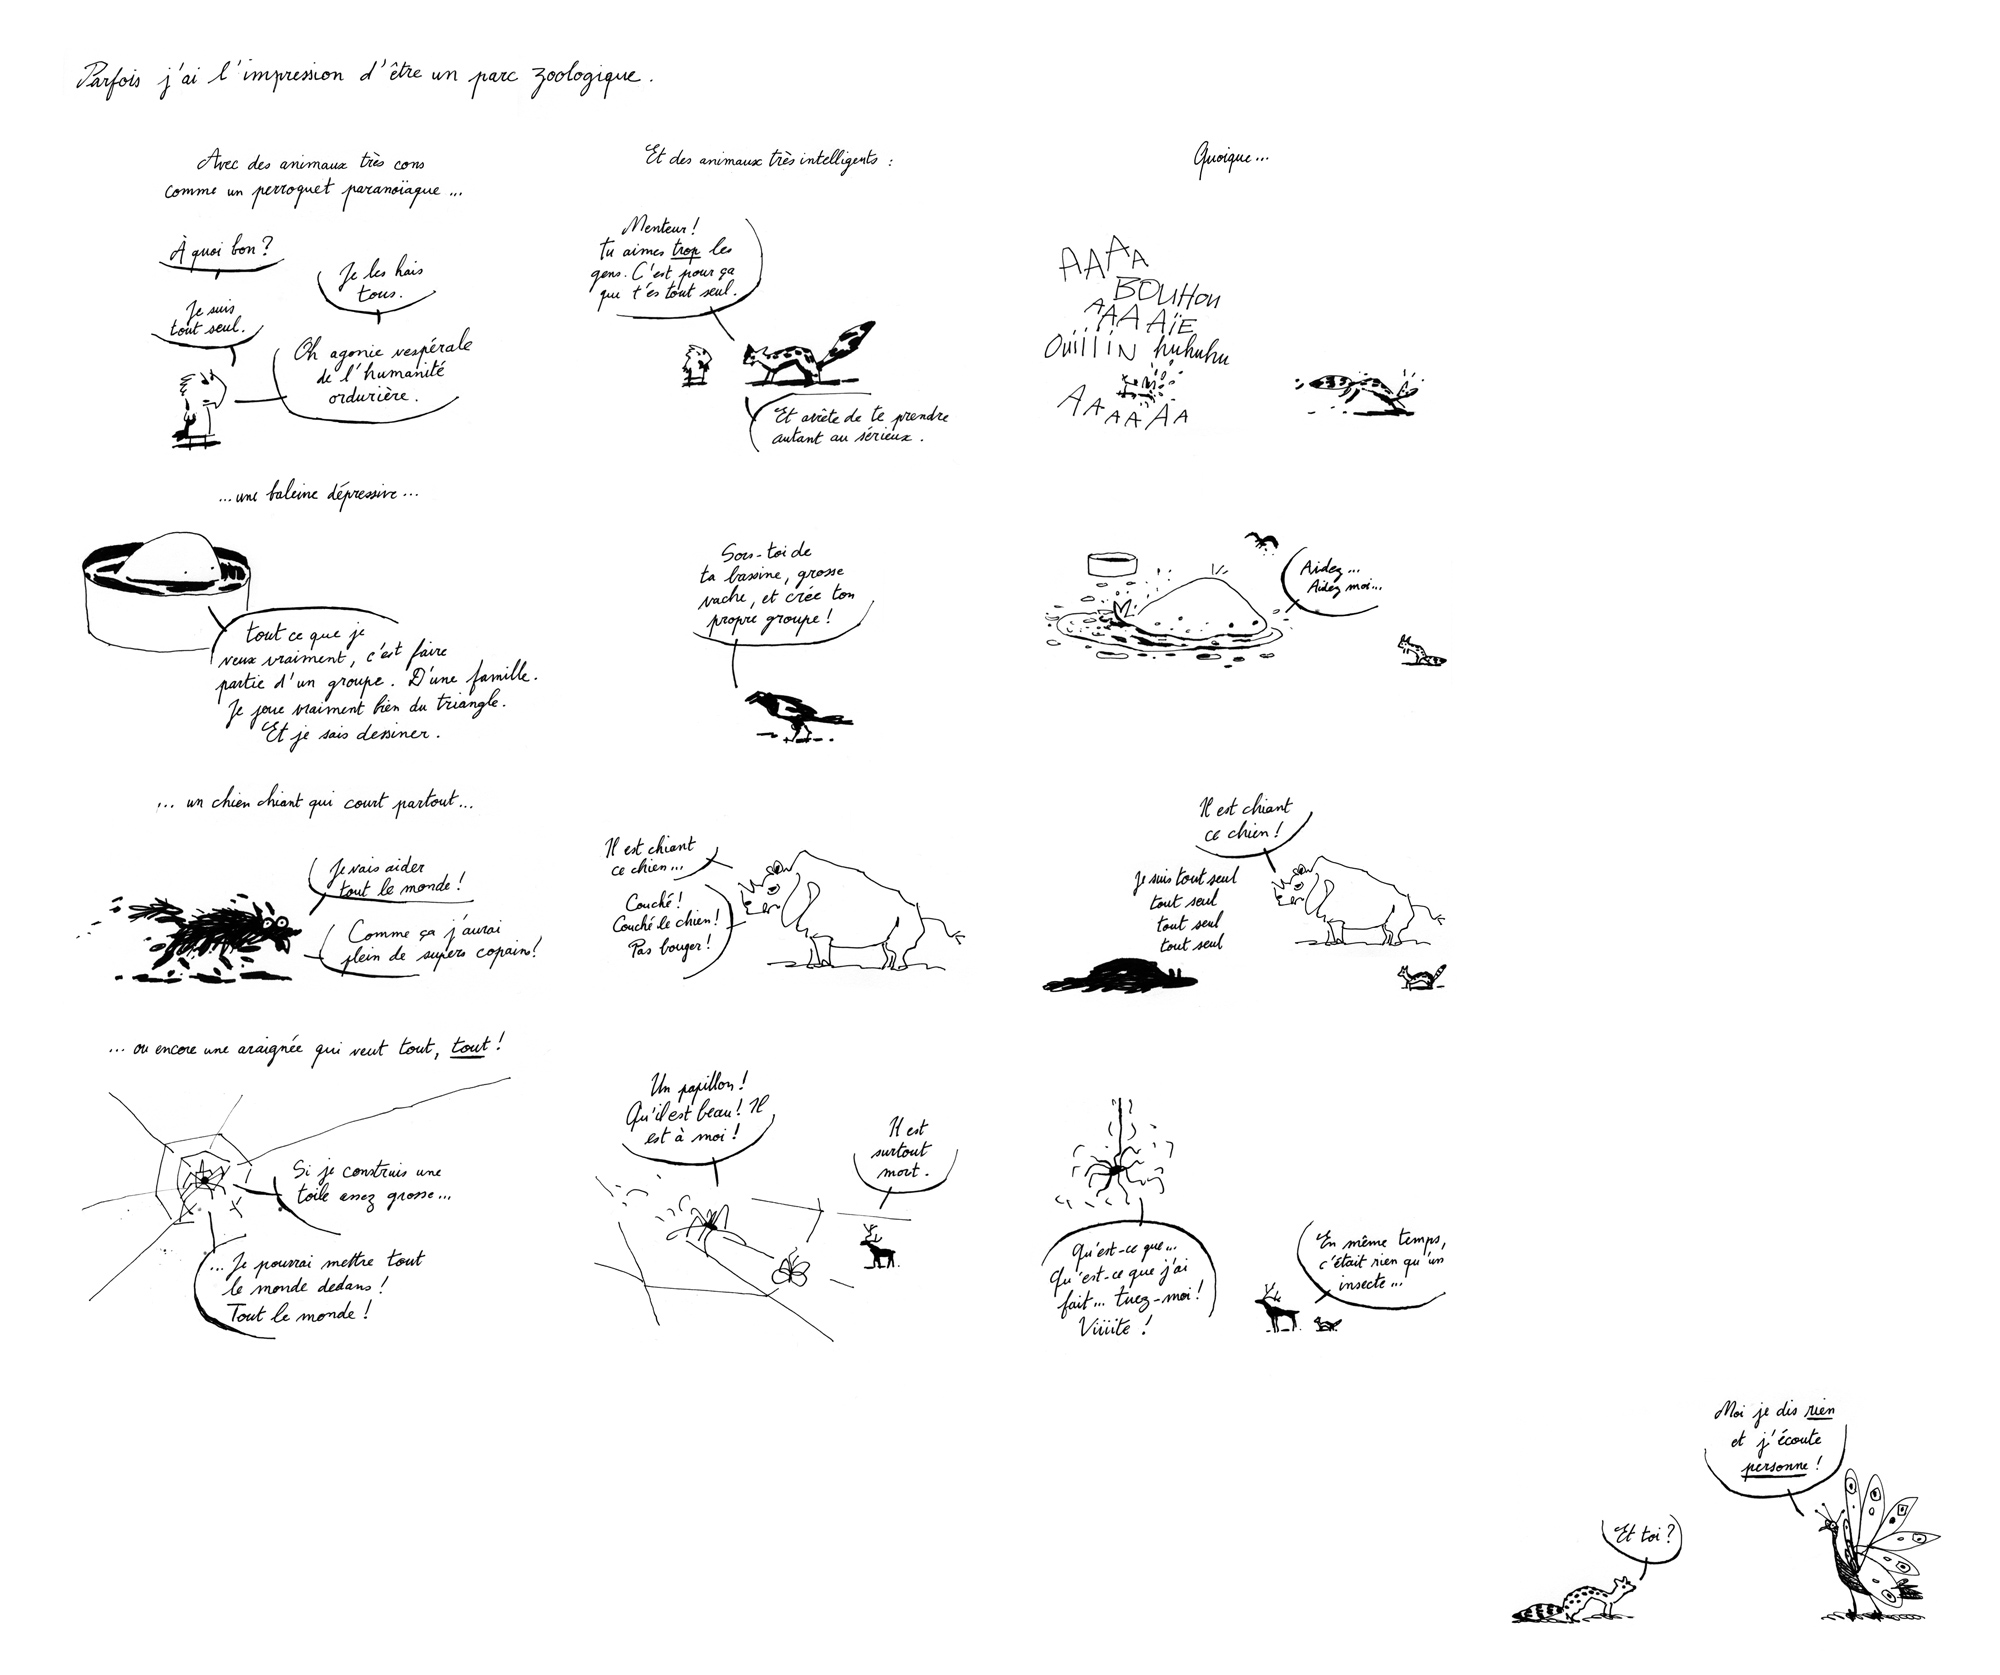 Parfois j'ai l'impression d'être un parc zoologique.
Avec des animaux très cons
comme un perroquet paranoïaque...
À quoi bon ?
Je les hais
tous.
Je suis
tout seul.
Oh agonie vespérale
de l'humanité
ordurière.
Et des animaux très intelligents :
Menteur !
Tu aimes trop les
gens. C'est pour ça
que t'es tout seul.
Et arrête de te prendre
autant au sérieux.
Quoique...
AAAA
BOUHOU
AAAA AÏE
OUIIIIN huhuhu
AAAAAA
...une baleine dépressive...
tout ce que je
veux vraiment, c'est faire
partie d'un groupe. D'une famille.
Je joue vraiment bien du triangle.
Et je sais dessiner.
Sors-toi de
ta bassine, grosse
vache, et crée ton
propre groupe !
Aidez...
Aidez moi...
... un chien chiant qui court partout...
Je vais aider
tout le monde !
Comme ça j'aurai
plein de supers copains !
Il est chiant
ce chien...
Couché !
Couché le chien !
Pas bouger !
Il est chiant
ce chien !
Je suis tout seul
tout seul
tout seul
tout seul
... ou encore une araignée qui veut tout, tout !
Si je construis une
toile assez grosse...
... Je pourrai mettre tout
le monde dedans !
Tout le monde !
Un papillon !
Qu'il est beau ! Il
est à moi !
Il est
surtout
mort.
Qu'est-ce que...
Qu'est-ce que j'ai
fait... tuez-moi !
Viiiite !
En même temps,
c'était rien qu'un
insecte...
Moi je dis rien
et j'écoute
personne !
Et toi ?